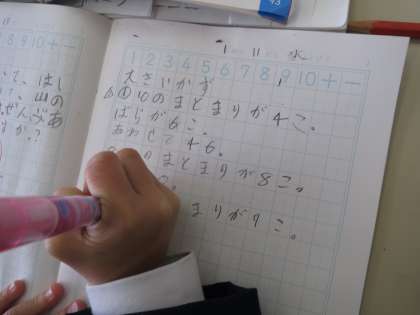 8 9 10 + −
はし
山の
ぜんぶあ
すか?
1 11 水
1 2 3 4 5 6 7 8 9 10 + −
大きいかず
①10のまとまりが4こ。
ばらが6こ。
あわせて46。
のまとまりが8こ。
まりが9こ。